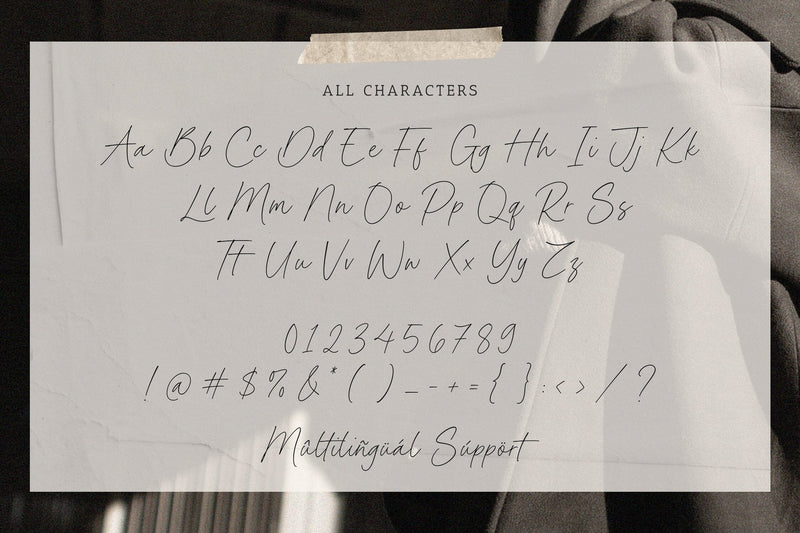 ALL CHARACTERS
Aa Bb Cc Dd Ee Ff Gg Hh Ii Jj Kk
Ll Mm Nn Oo Pp Qq Rr Ss
Tt Uu Vv Ww Xx Yy Zz
0123456789
!@#$%&*()_-+={}:<>/?
Mûltiliñgüál Súppört